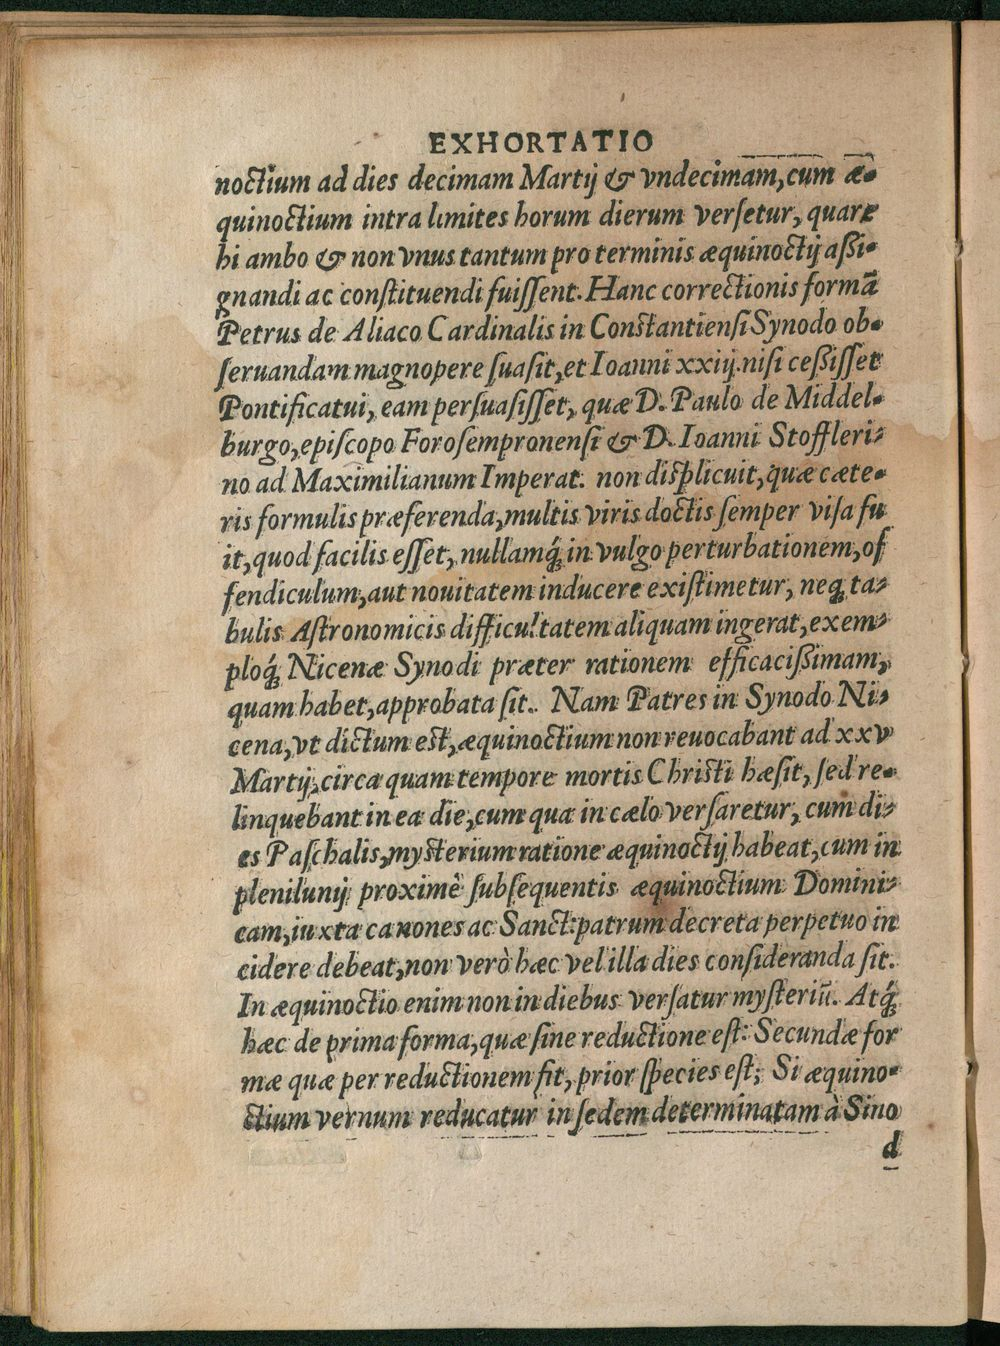 EXHORTATIO
noctium ad dies decimam Martij & vndecimam, cum æ-
quinoctium intra limites horum dierum verſetur, quare
hi ambo & non vnus tantum pro terminis æquinoctij aßi-
gnandi ac conſtituendi fuiſſent. Hanc correctionis formā
Petrus de Aliaco Cardinalis in Conſtantienſi Synodo ob-
ſeruandam magnopere ſuaſit, et Ioanni xxiij. niſi ceßiſſet
Pontificatui, eam perſuaſiſſet, quæ D. Paulo de Middel-
burgo, epiſcopo Foroſempronenſi & D. Ioanni Stoffleri-
no ad Maximilianum Imperat. non diſplicuit, quæ cæte-
ris formulis præferenda, multis viris doctis ſemper viſa fu
it, quod facilis eſſet, nullamq́; in vulgo perturbationem, of
fendiculum, aut nouitatem inducere exiſtimetur, neq; ta-
bulis Aſtronomicis difficultatem aliquam ingerat, exem-
ploq́; Nicenæ Synodi præter rationem efficacißimam,
quam habet, approbata ſit. Nam Patres in Synodo Ni-
cena, vt dictum eſt, æquinoctium non reuocabant ad xxv
Martij, circa quam tempore mortis Chriſti hæſit, ſed re-
linquebant in ea die, cum qua in cælo verſaretur, cum di-
es Paſchalis, myſterium ratione æquinoctij habeat, cum in
plenilunij proximè ſubſequentis æquinoctium Domini-
cam, iuxta canones ac Sanct. patrum decreta perpetuo in
cidere debeat, non verò hæc vel illa dies conſideranda ſit.
In æquinoctio enim non in diebus verſatur myſteriū. Atq́;
hæc de prima forma, quæ ſine reductione eſt: Secundæ for
mæ quæ per reductionem fit, prior ſpecies eſt; Si æquino-
ctium vernum reducatur in ſedem determinatam à Sino
d